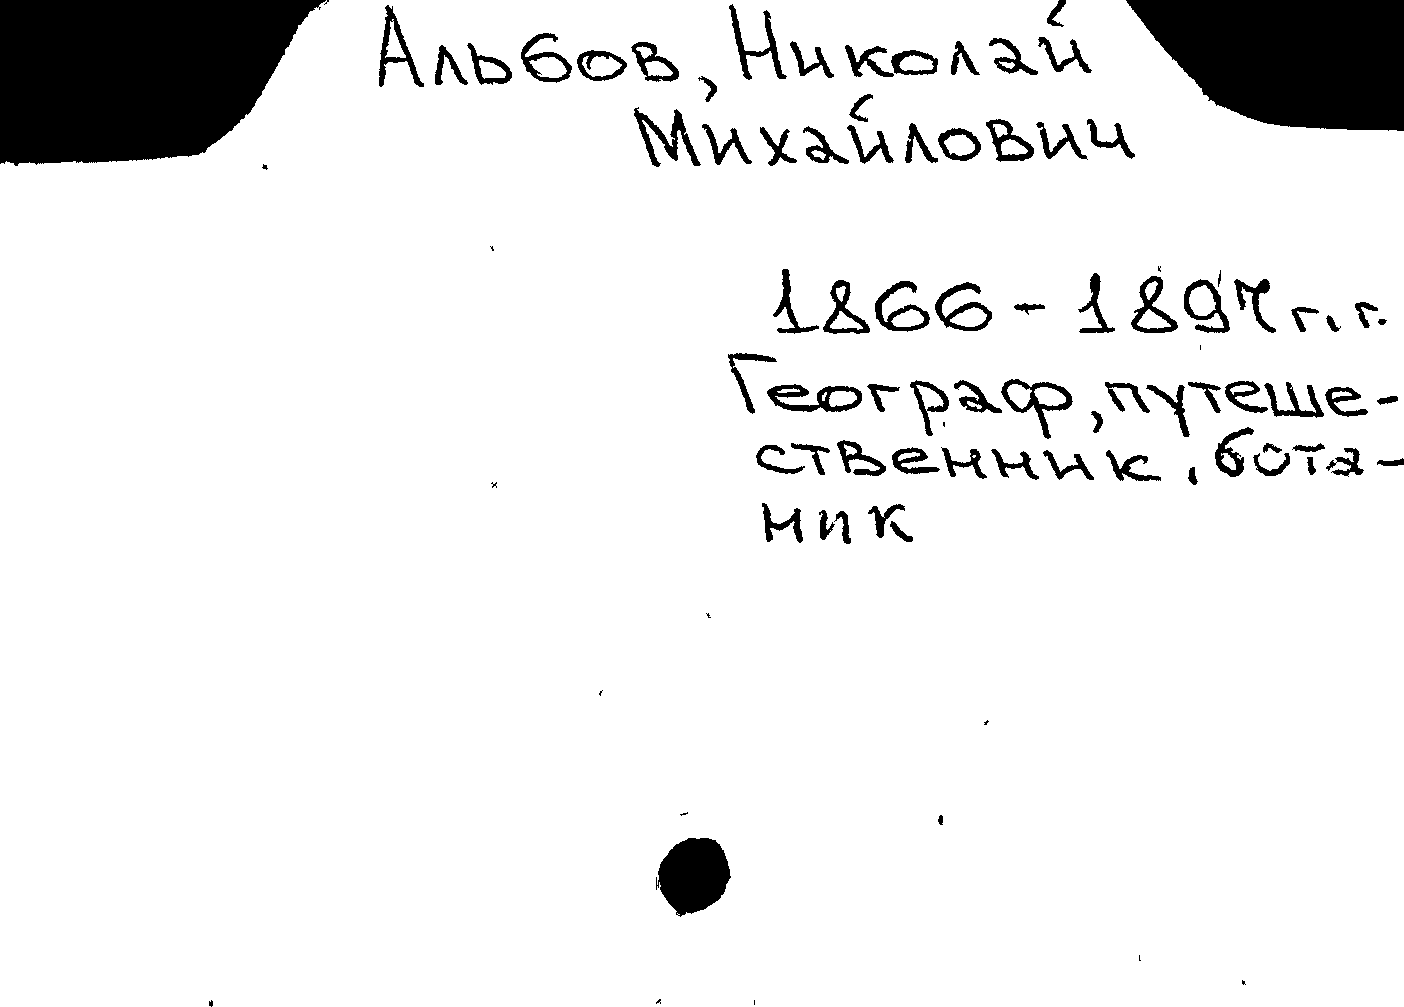 Альбов, Николай
Михайлович
1866-1897 г.г.
Географ, путеше-
ственник, бота-
ник